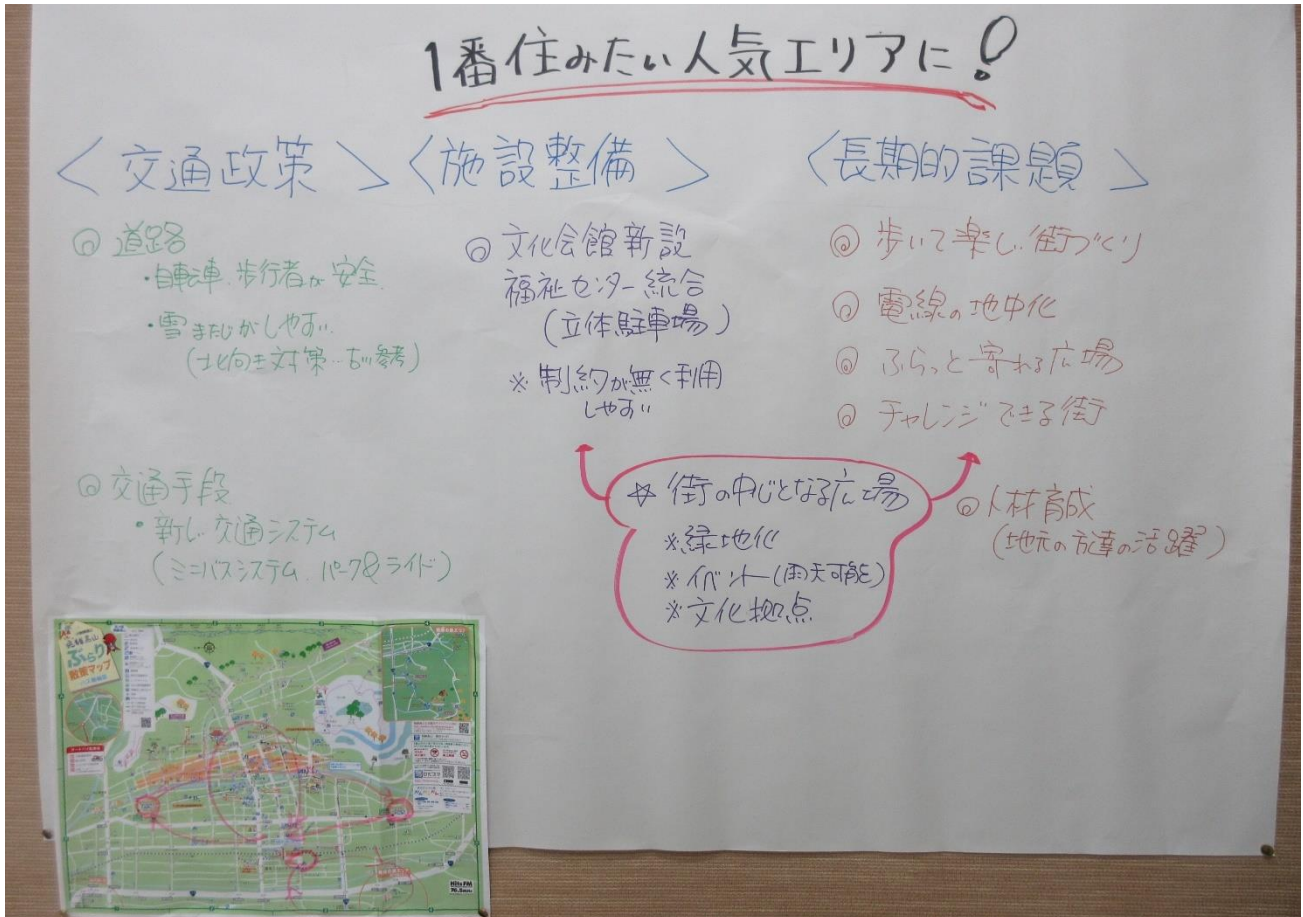 1番住みたい人気エリアに!
<交通政策>
◎ 道路
・自転車、歩行者が安全
・雪またじがしやすい
(北向き対策…古い参考)
◎ 交通手段
・新しい交通システム
(ミニバスシステム、パーク&ライド)
<施設整備>
◎ 文化会館新設
福祉センター統合
(立体駐車場)
※ 制約が無く利用
しやすい
☆ 街の中心となる広場
※緑地化
※イベント(雨天可能)
※文化拠点
<長期的課題>
◎ 歩いて楽しい街づくり
◎ 電線の地中化
◎ ふらっと寄れる広場
◎ チャレンジできる街
◎人材育成
(地元の方達の活躍)
飛騨高山
ぶらり
散策マップ
Hits FM
76.5MHz